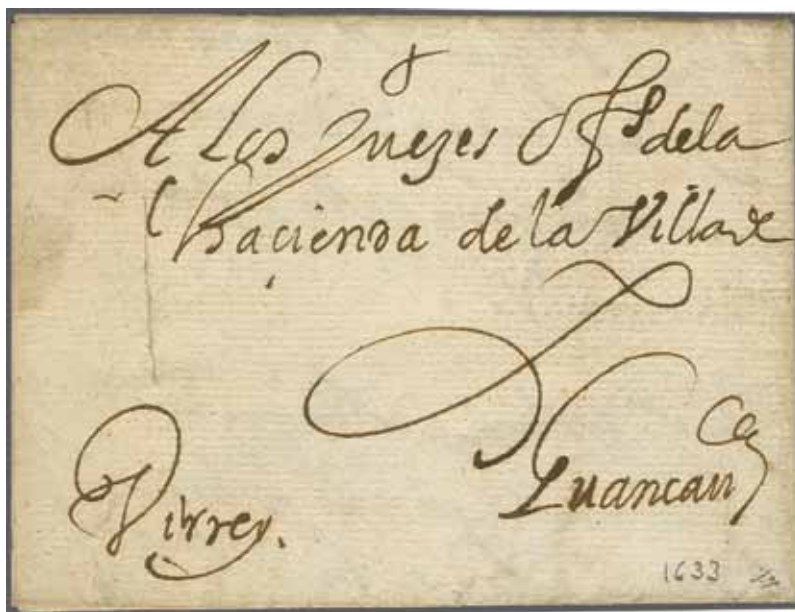 A los Juezes offs de la
hacienda de la Villa de
Guancau ca
Virrey.
1633